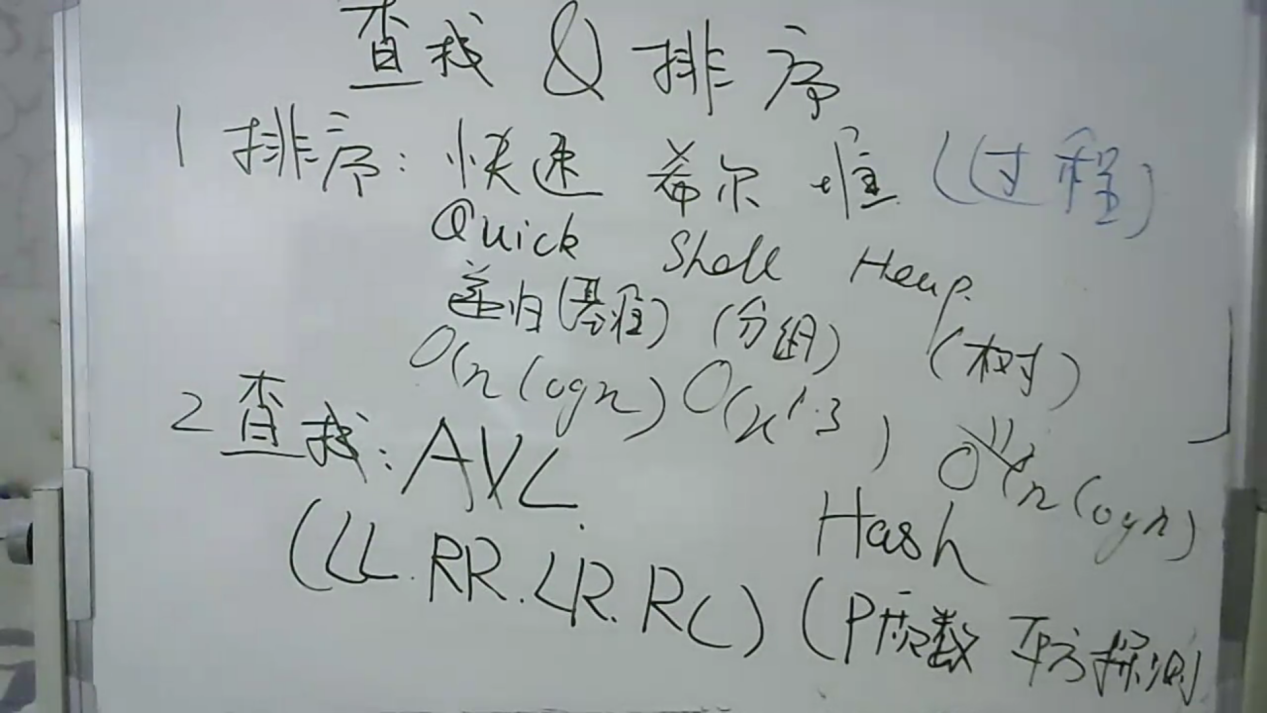 查找 & 排序
1 排序: 快速 希尔 堆 (过程)
Quick Shell Heap.
递归(基准) (分组) (树)
O(nlogn) O(n^1.3) O(nlogn)
2 查找: AVL. Hash
(LL. RR. LR. RL) (P质数 平方探测